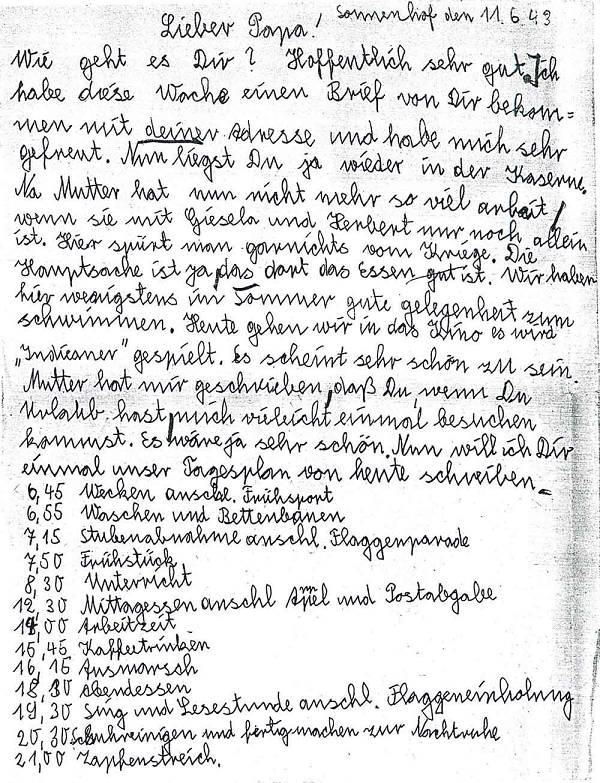 Sonnenhof den 11.6.43
Lieber Papa!
Wie geht es Dir? Hoffentlich sehr gut. Ich
habe diese Woche einen Brief von Dir bekom=
men mit deiner Adresse und habe mich sehr
gefreut. Nun liegst Du ja wieder in der Kaserne.
Na Mutter hat nun nicht mehr so viel arbeit,
wenn sie mit Giesela und Herbert nur noch allein
ist. Hier spürt man garnichts vom Kriege. Die
Hauptsache ist ja, das dort das Essen gut ist. Wir haben
hier wenigstens im Sommer gute gelegenheit zum
schwimmen. Heute gehen wir in das Kino es wird
„Indieaner" gespielt. Es scheint sehr schön zu sein.
Mutter hat mir geschrieben, daß Du, wenn Du
Urlaub hast, mich vieleicht einmal besuchen
kommst. Es wäre ja sehr schön. Nun will ich Dir
einmal unser Tagesplan von heute schreiben. =
6,45 Wecken anschl. Frühsport
6,55 Waschen und Bettenbauen
7,15 Stubenabnahme anschl. Flaggenparade
7,50 Frühstück
8,30 Unterricht
12,30 Mittagessen anschl und Postabgabe
14,00 Arbeitzeit
15,45 Kaffeetrinken
16,15 Ausmarsch
18,30 abendessen
19,30 Sing und Lesestunde anschl. Flaggeneinholung
20,30 Schuhreinigen und fertigmachen zur Nachtruhe
21,00 Zapfenstreich.